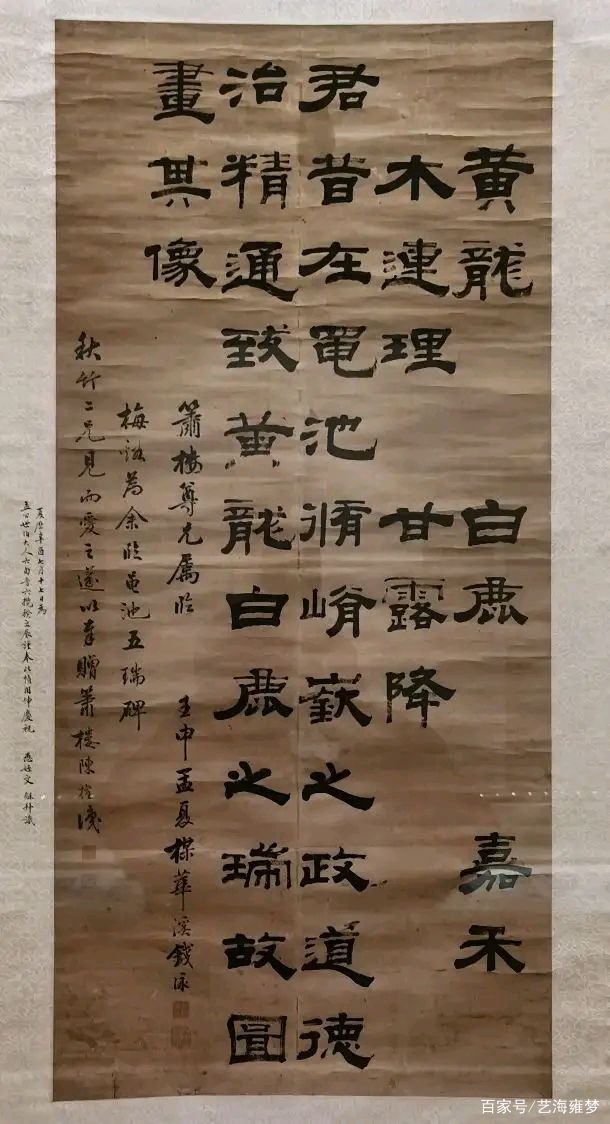 黃龍 白鹿 嘉禾
木連理 甘露降
君昔在黽池脩崤嶔之政道德
治精通致黃龍白鹿之瑞故圖
畫其像
簫樓尊兄屬臨
壬申孟夏梅華溪錢泳
梅溪為余臨黽池五瑞碑
秋竹二兄見而愛之遂以奉贈簫樓陳
百家号/艺海雍梦